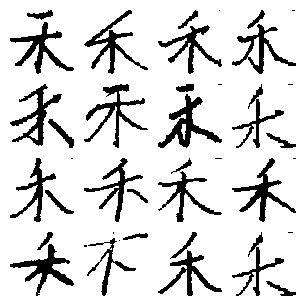 禾禾禾禾
禾禾禾禾
禾禾禾禾
禾禾禾禾